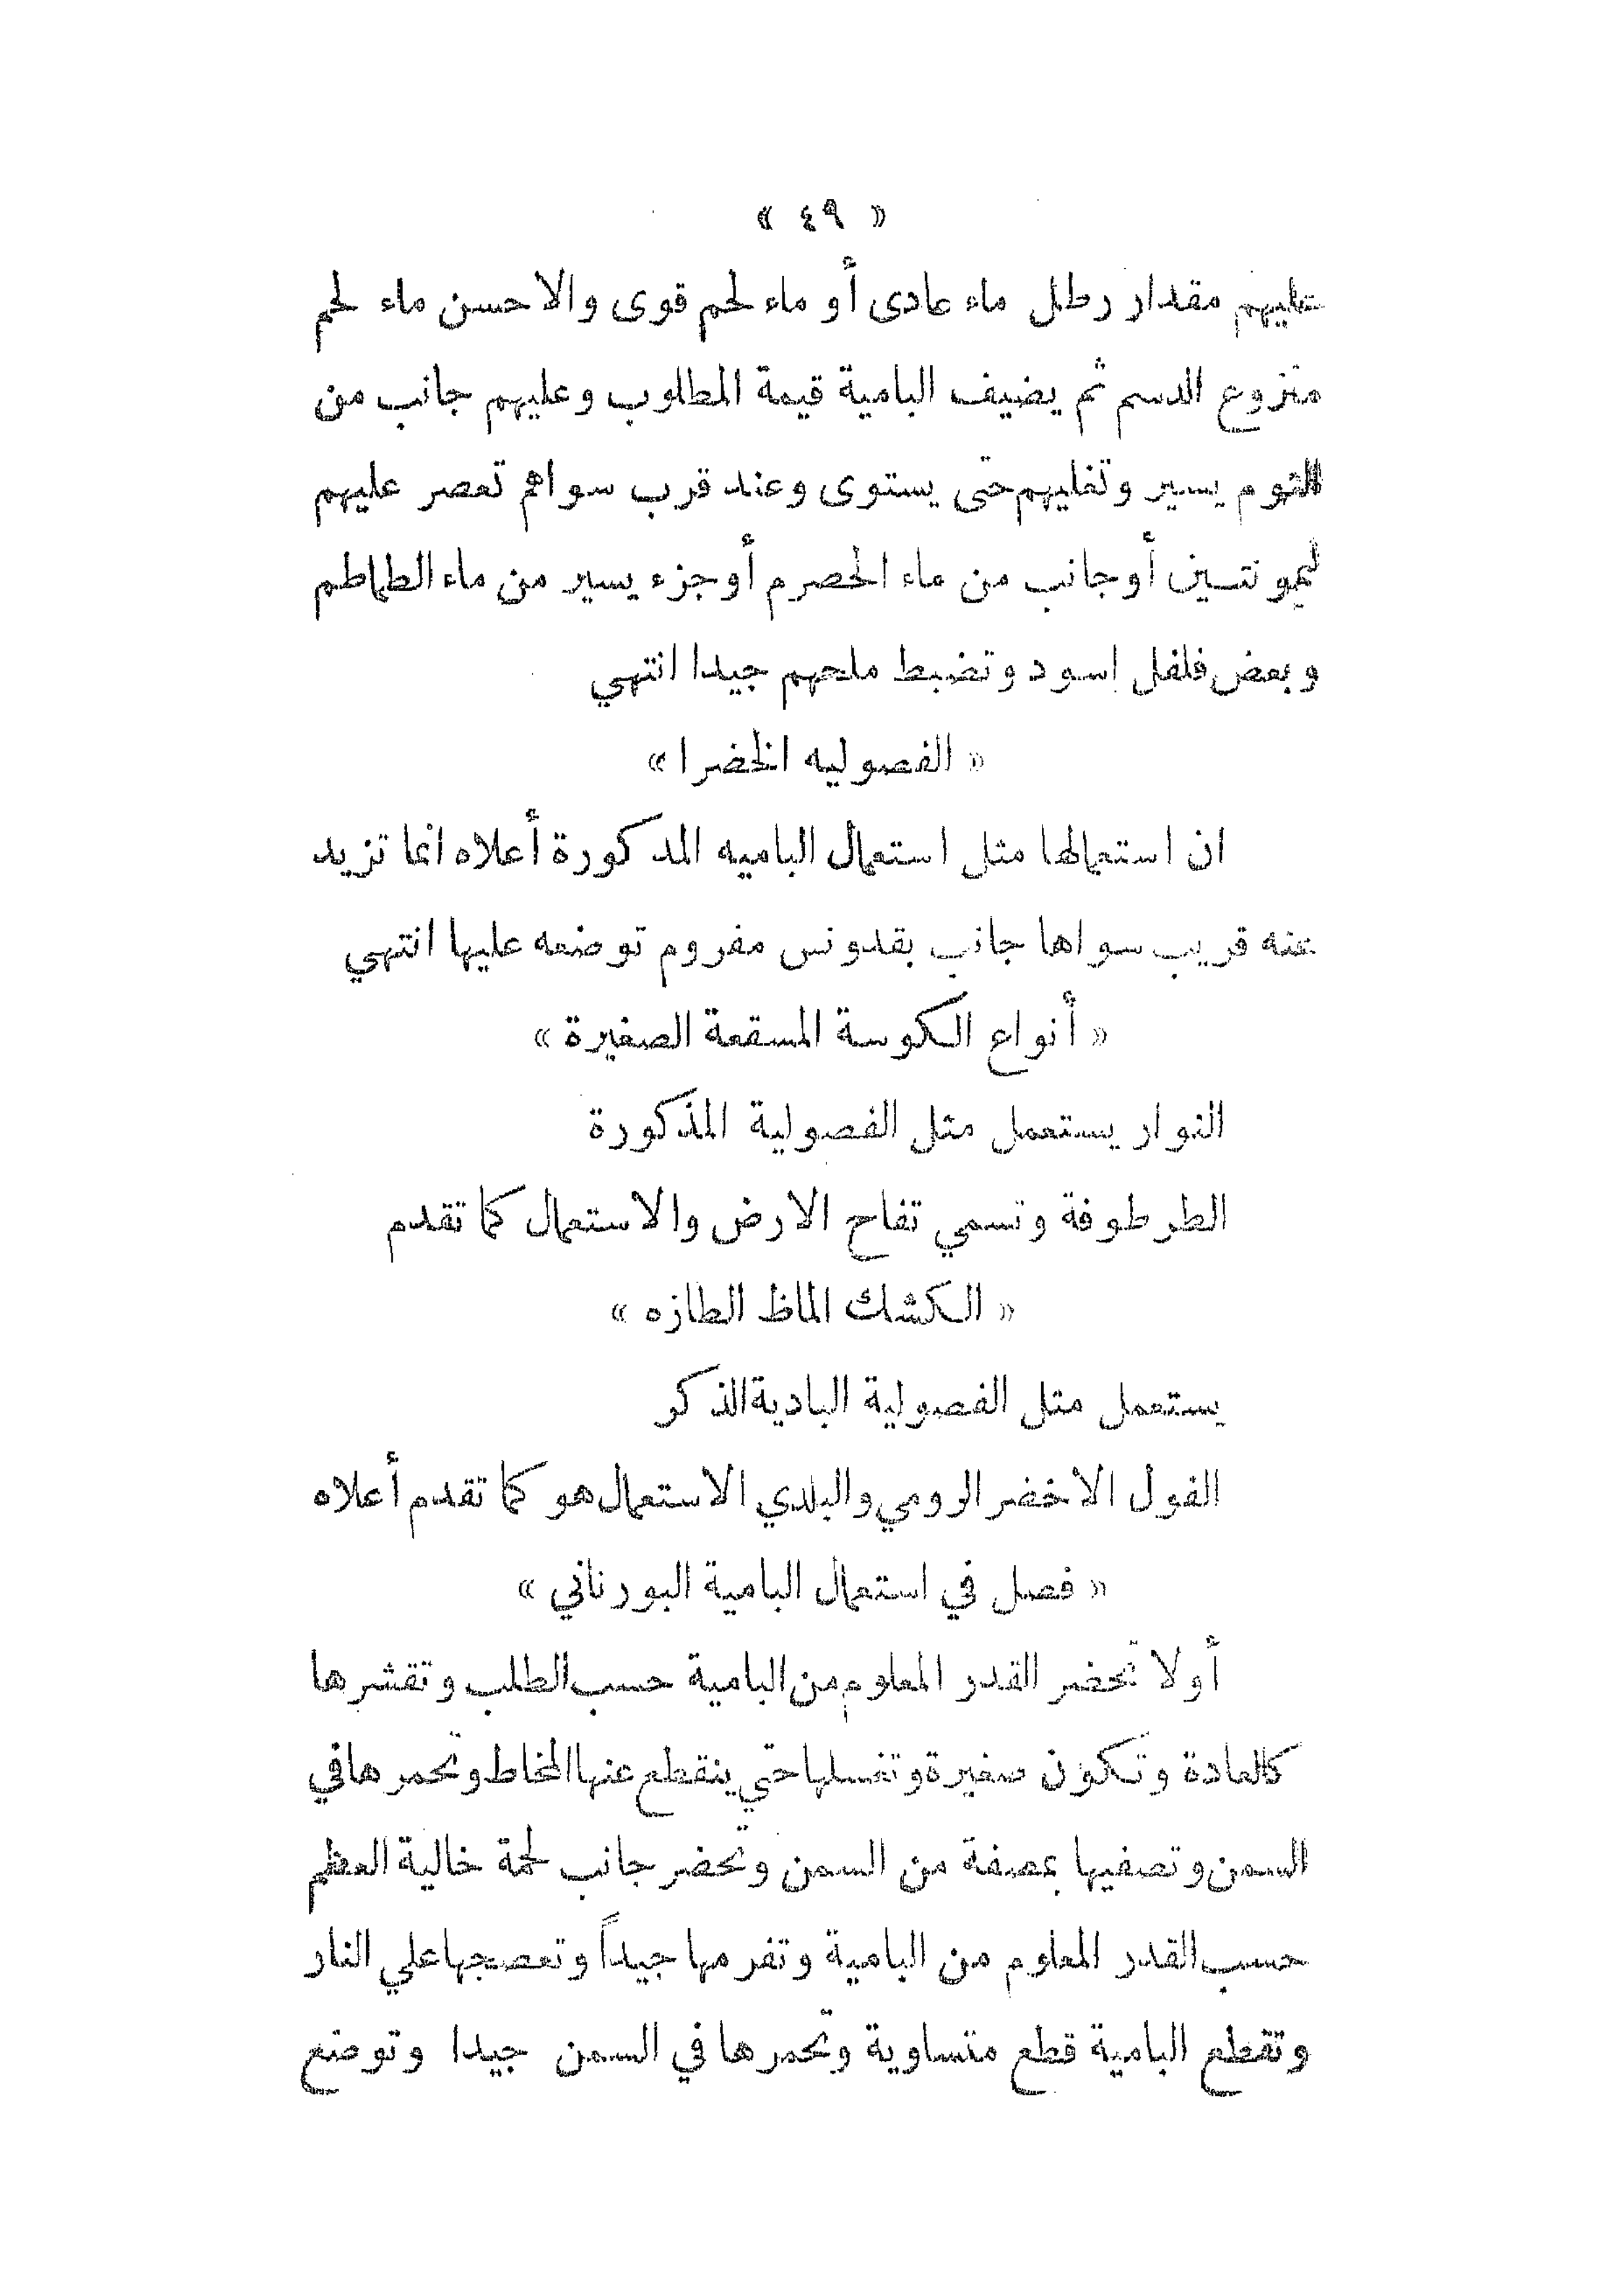 « ٤٩ »
عليهم مقدار رطل ماء عادى أو ماء لحم قوى والاحسن ماء لحم
منزوع الدسم ثم يضيف البامية قيمة المطلوب وعليهم جانب من
الثوم يسير وتغليهم حتى يستوى وعند قرب سواهم تعصر عليهم
ليمونتسين أو جانب من ماء الحصرم أو جزء يسير من ماء الطماطم
وبعض فلفل اسود وتضبط ملحهم جيدا انتهي
« الفصوليه الخضرا »
ان استعمالها مثل استعمال الباميه المذكورة أعلاه انما تزيد
عنه قريب سواها جانب بقدونس مفروم توضعه عليها انتهي
« أنواع الكوسة المسقعة الصغيرة »
النوار يستعمل مثل الفصولية المذكورة
الطرطوفة وتسمي تفاح الارض والاستعمال كما تقدم
« الكشك الماظ الطازه »
يستعمل مثل الفصولية البادية الذكر
الفول الاخضر الرومي والبلدي الاستعمال هو كما تقدم أعلاه
« فصل في استعمال البامية البورناني »
أولا تحضر القدر المعلوم من البامية حسب الطلب وتقشرها
كالعادة وتكون صغيرة وتغسلها حتي ينقطع عنها المخاط وتحمرها في
السمن وتصفيها بمصفة من السمن وتحضر جانب لحمة خالية العظم
حسب القدر المعلوم من البامية وتفرمها جيداً وتعصجها علي النار
وتقطع البامية قطع متساوية وتحمرها في السمن جيدا وتوضع